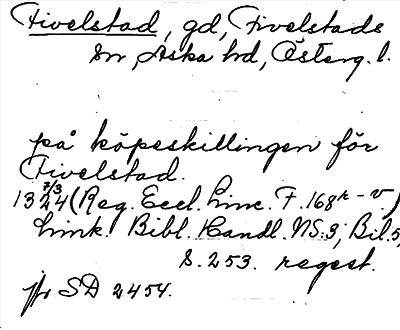 Fivelstad, gd, Fivelstads
sn, Aska hd, Österg. l.
på köpeskillingen för
Fivelstad.
7/3
1324 (Reg. Eccl. Linc. F. 168r-v.)
Link. Bibl. Handl. NS: 3, Bil. 5,
S. 253. regest.
jfr SD 2454.